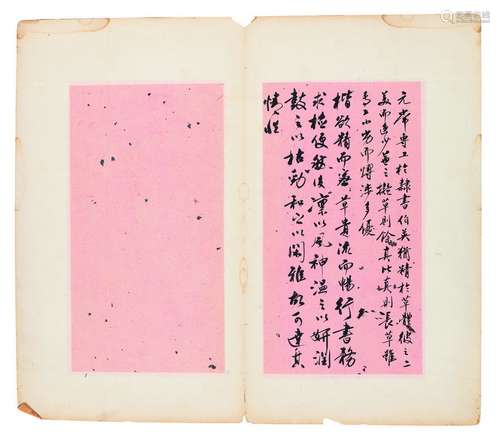 元常專工於隸書伯英猶精於草體彼之二
美而逸少兼之擬草則餘真比真則長草雖
專工小劣而博涉多優
楷欲精而密草貴流而暢行書務
求檢便然後凜以風神溫之以妍潤
鼓之以枯勁和之以閑雅故可達其
情性